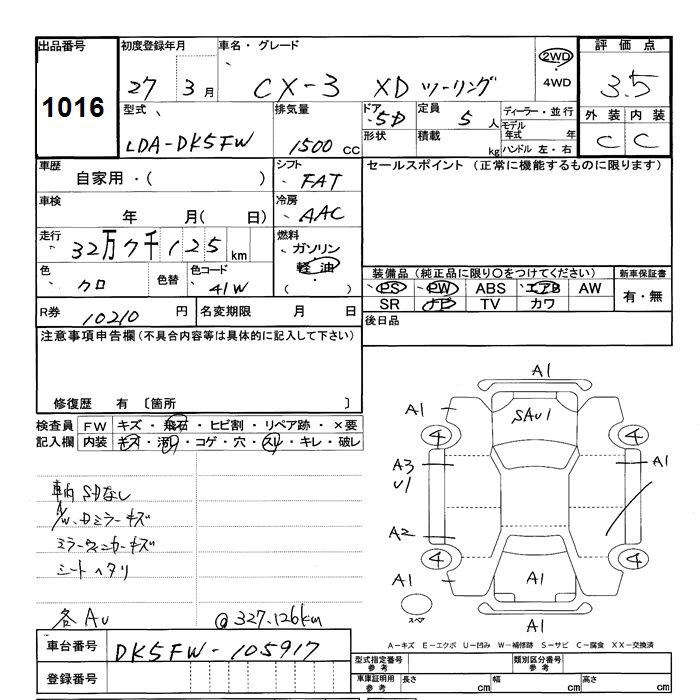 出品番号
1016
初度登録年月
27 3 月
車名・グレード
CX-3 XDツーリング
2WD
・
4WD
評価点
3.5
外装 内装
C C
型式
LDA-DK5FW
排気量
1500 cc
ドア
5D
形状
定員
5 人
積載
kg
ディーラー・並行
モデル
年式 年
ハンドル 左・右
車歴
自家用・( )
シフト
FAT
セールスポイント (正常に機能するものに限ります)
車検
年 月( 日)
冷房
AAC
走行
32万7千125 km
燃料
ガソリン
軽油
( ・ )
色
クロ
色替
色コード
41W
装備品(純正品に限り○をつけてください)
PS ・ PW ABS エアB AW
SR ナビ TV カワ
新車保証書
有・無
R券 10210 円
名変期限 月 日
後日品
注意事項申告欄(不具合内容等は具体的に記入して下さい)
修復歴 有 〔箇所 〕
検査員
記入欄
FW キズ・飛石・ヒビ割・リペア跡・×要
内装 キズ・汚レ・コゲ・穴・スレ・キレ・破レ
車内SDなし
A/W、Dミラーキズ
ミラーウィンカーキズ
シートヘタリ
各AU @327.126km
A1
A1
SAU1
4
4
A3
U1
A1
A2
4
4
A1
A1
スペア
A1
A-キズ E-エクボ U-凹み W-補修跡 S-サビ C-腐食 XX-交換済
車台番号 DK5FW-105917
登録番号
型式指定番号
参考
類別区分番号
参考
車庫証明用
参考
長さ cm 幅 cm 高さ cm